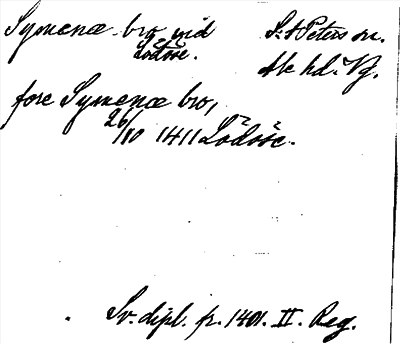 Symenæ bro vid S:t Peters sn.
Lödöse. Ale hd. Vg.
fore Symenæ bro,
26/10 1411 Lödöse.
Sv. dipl. fr. 1401. II. Reg.